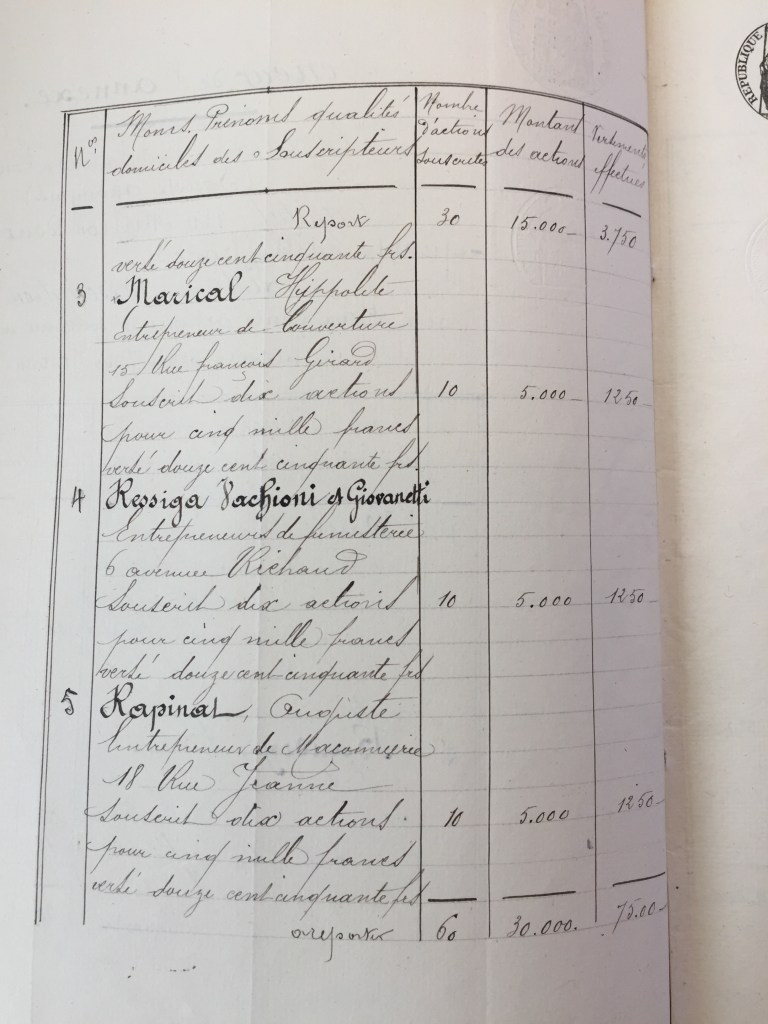 RÉPUBLIQUE
Nos
Noms, Prénoms qualités
domiciles des Souscripteurs
Nombre
d'actions
souscrites
Montant
des actions
Versements
effectués
Report 30 15.000 3.750
versé douze cent cinquante frs.
3 Marical Hippolite
Entrepreneur de Couverture
15 Rue françois Girard
Souscrit dix actions 10 5.000 1250
pour cinq mille francs
versé douze cent cinquante frs.
4 Ressiga Vachioni et Giovanetti
Entrepreneurs de fumisterie
6 avenue Richaud
Souscrit dix actions 10 5.000 1250
pour cinq mille francs
versé douze cent cinquante frs
5 Rapinat, Auguste
Entrepreneur de Maconnerie
18 Rue Jeanne
souscrit dix actions 10 5.000 1250
pour cinq mille francs
versé douze cent cinquante frs
a reporter 60 30.000. 75.00